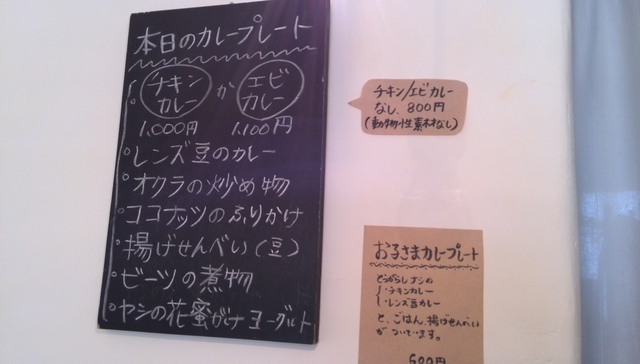 本日のカレープレート
チキンカレー か エビカレー
1,000円 1,100円
レンズ豆のカレー
オクラの炒め物
ココナッツのふりかけ
揚げせんべい（豆）
ビーツの煮物
ヤシの花蜜がけ ヨーグルト
チキン/エビカレー
なし、800円
（動物性素材なし）
お子さまカレープレート
とうがらしナシの
・チキンカレー
・レンズ豆カレー
と、ごはん、揚げせんべい
がついています。
600円